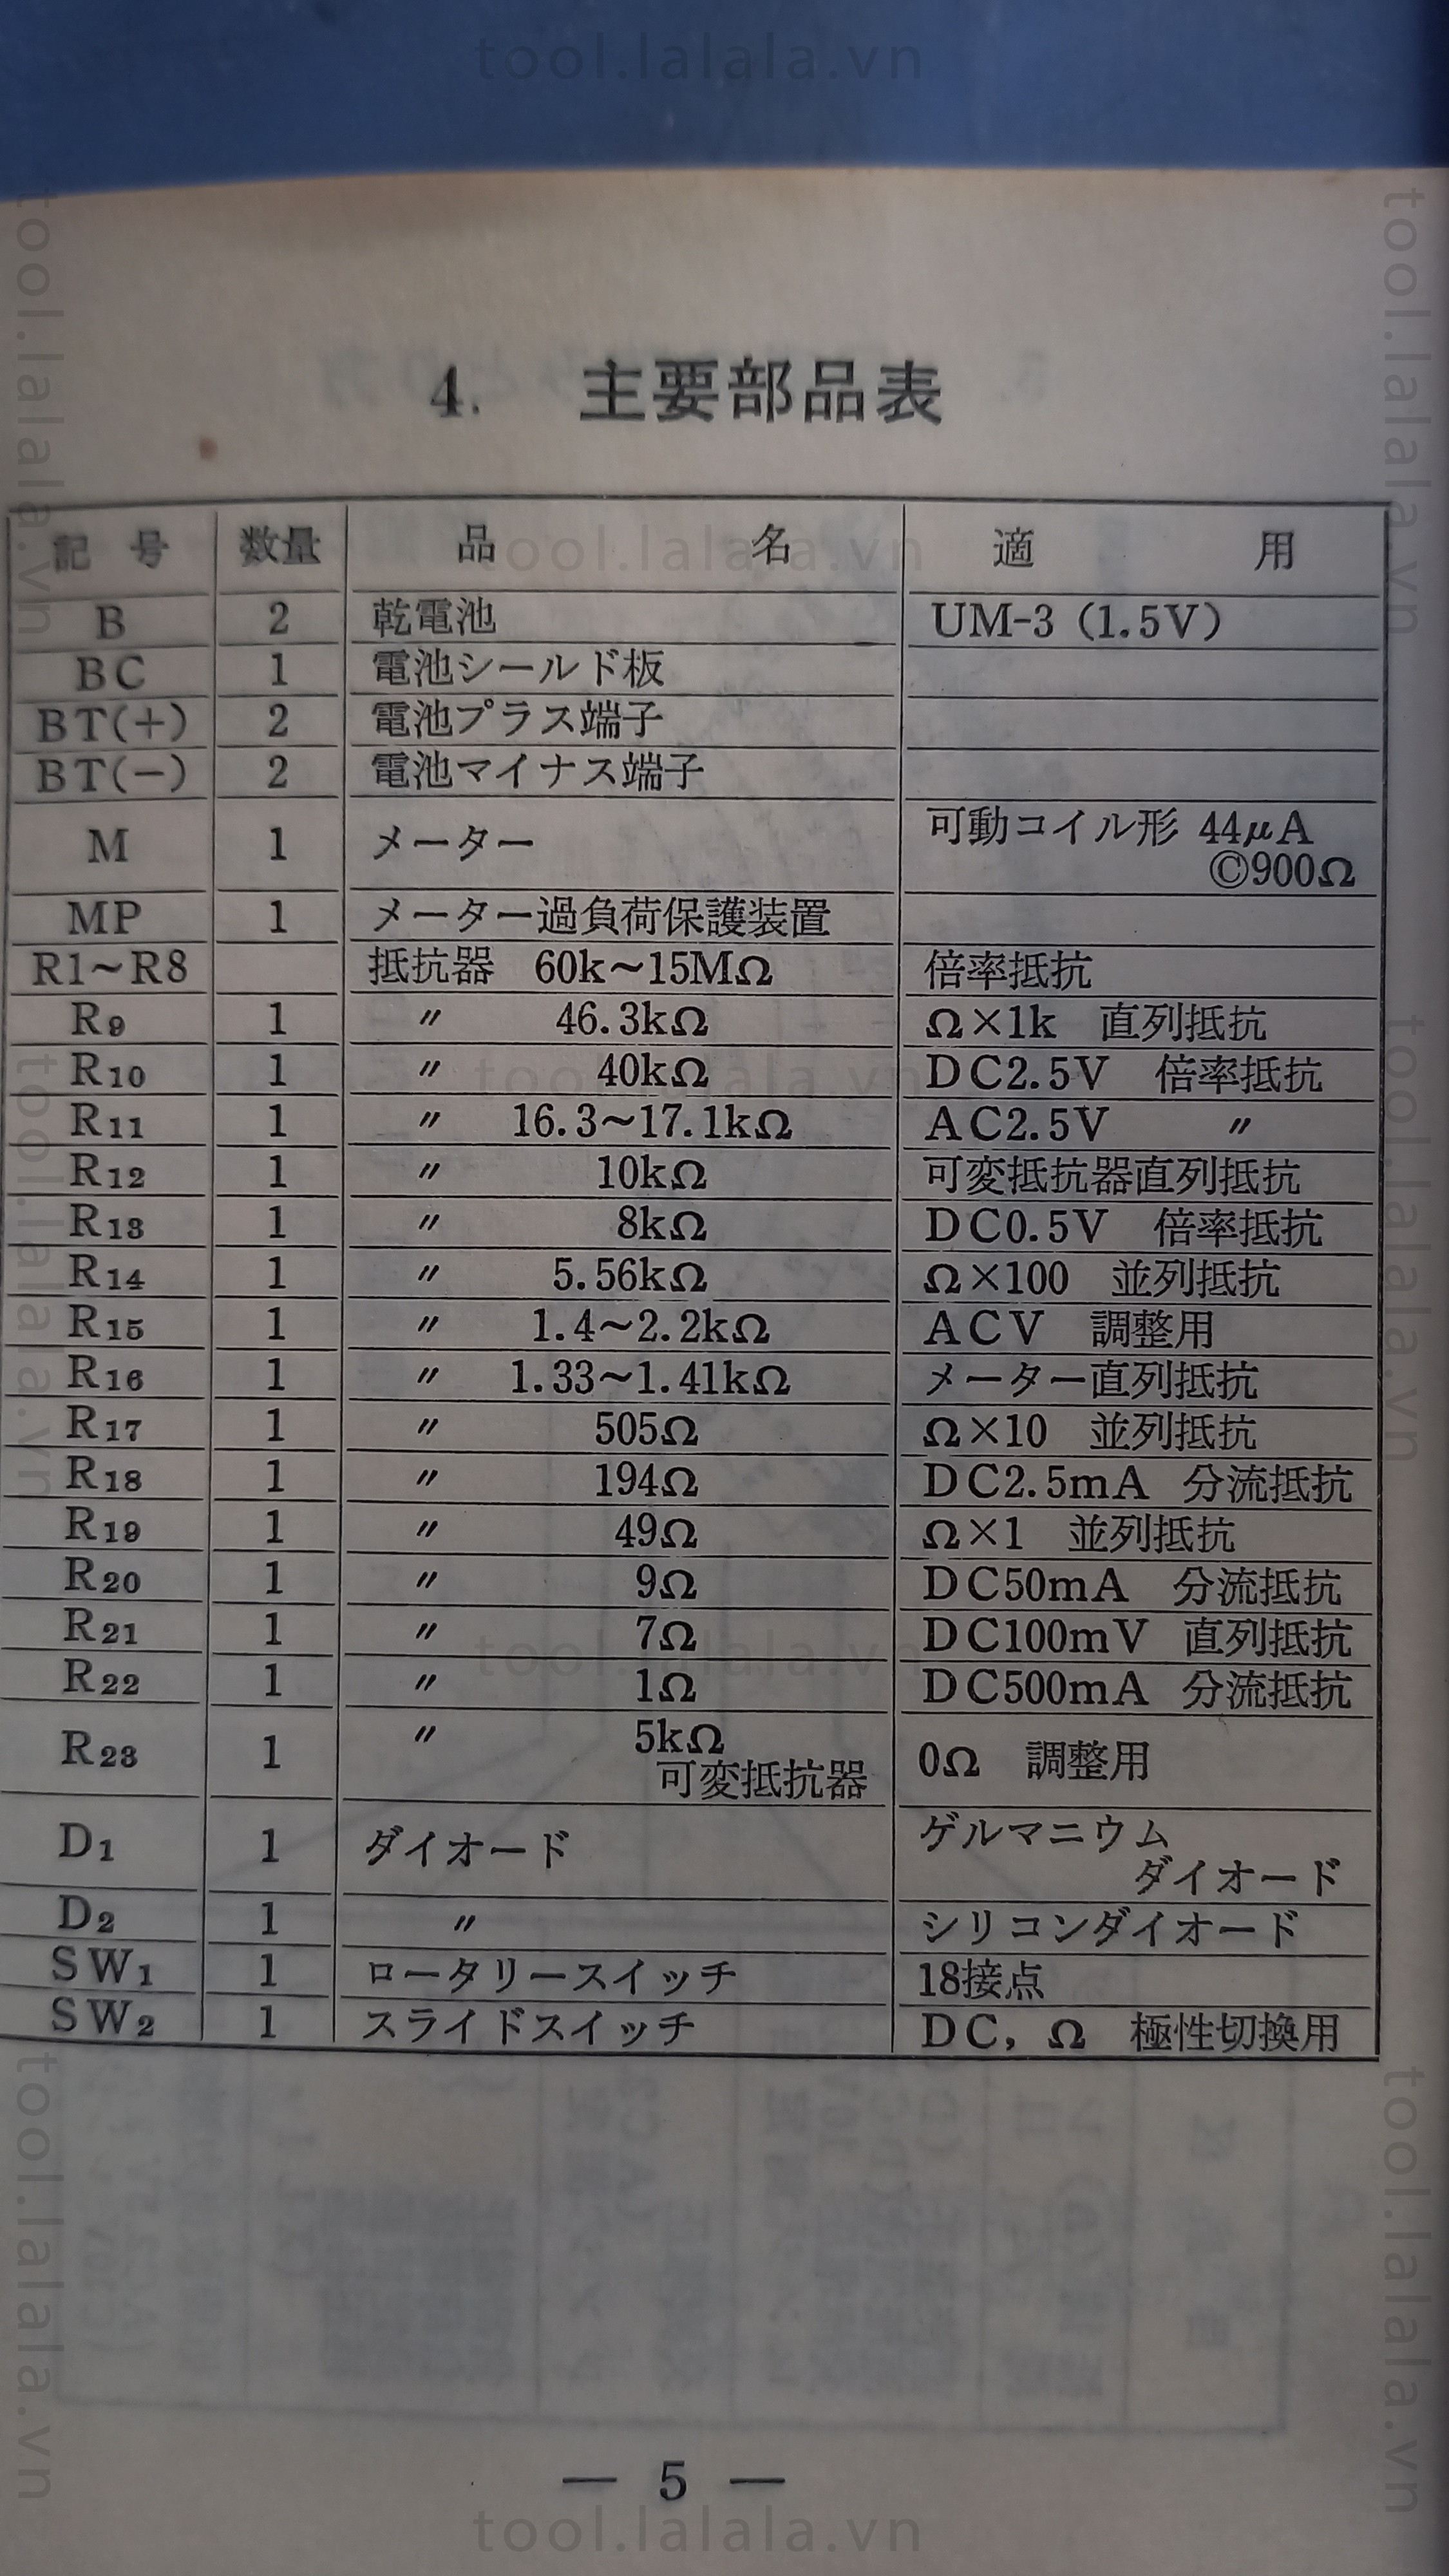 tool.lalala.vn
4. 主要部品表
記号 数量 品名 適用
B 2 乾電池 UM-3 (1.5V)
BC 1 電池シールド板
BT(+) 2 電池プラス端子
BT(−) 2 電池マイナス端子
M 1 メーター 可動コイル形 44μA
Ⓒ900Ω
MP 1 メーター過負荷保護装置
R1~R8 抵抗器 60k~15MΩ 倍率抵抗
R9 1 〃 46.3kΩ Ω×1k 直列抵抗
R10 1 〃 40kΩ DC2.5V 倍率抵抗
R11 1 〃 16.3~17.1kΩ AC2.5V 〃
R12 1 〃 10kΩ 可変抵抗器直列抵抗
R13 1 〃 8kΩ DC0.5V 倍率抵抗
R14 1 〃 5.56kΩ Ω×100 並列抵抗
R15 1 〃 1.4~2.2kΩ ACV 調整用
R16 1 〃 1.33~1.41kΩ メーター直列抵抗
R17 1 〃 505Ω Ω×10 並列抵抗
R18 1 〃 194Ω DC2.5mA 分流抵抗
R19 1 〃 49Ω Ω×1 並列抵抗
R20 1 〃 9Ω DC50mA 分流抵抗
R21 1 〃 7Ω DC100mV 直列抵抗
R22 1 〃 1Ω DC500mA 分流抵抗
R23 1 〃 5kΩ 0Ω 調整用
可変抵抗器
D1 1 ダイオード ゲルマニウム
ダイオード
D2 1 〃 シリコンダイオード
SW1 1 ロータリースイッチ 18接点
SW2 1 スライドスイッチ DC, Ω 極性切換用
— 5 —
tool.lalala.vn